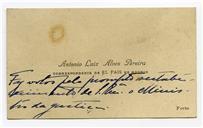 Antonio Luiz Alves Pereira
CORRESPONDENTE DE EL PAIS DE
Faz votos pelo prompto restabe-
lecimento de S. Ex.ª o Minis-
tro da justiça.
Porto